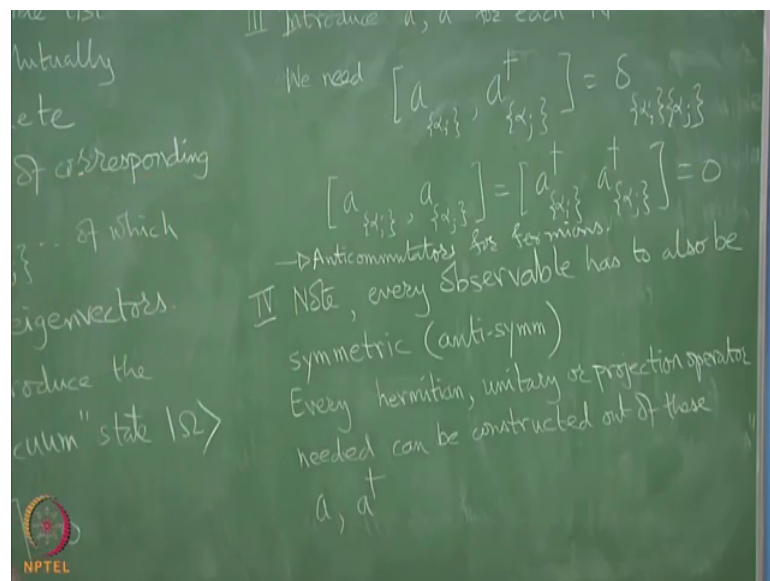 Mutually
ete
of corresponding
} ... of which
eigenvectors.
roduce the
cuum" state |Ω⟩
III Introduce a, a† for each
We need [a_{αi}, a†_{αj}] = δ_{αi}{αj}
[a_{αi}, a_{αj}] = [a†_{αi} a†_{αj}] = 0
→ Anticommutators for fermions.
IV Note, every observable has to also be
symmetric (anti-symm)
Every hermitian, unitary or projection operator
needed can be constructed out of these
a, a†
NPTEL